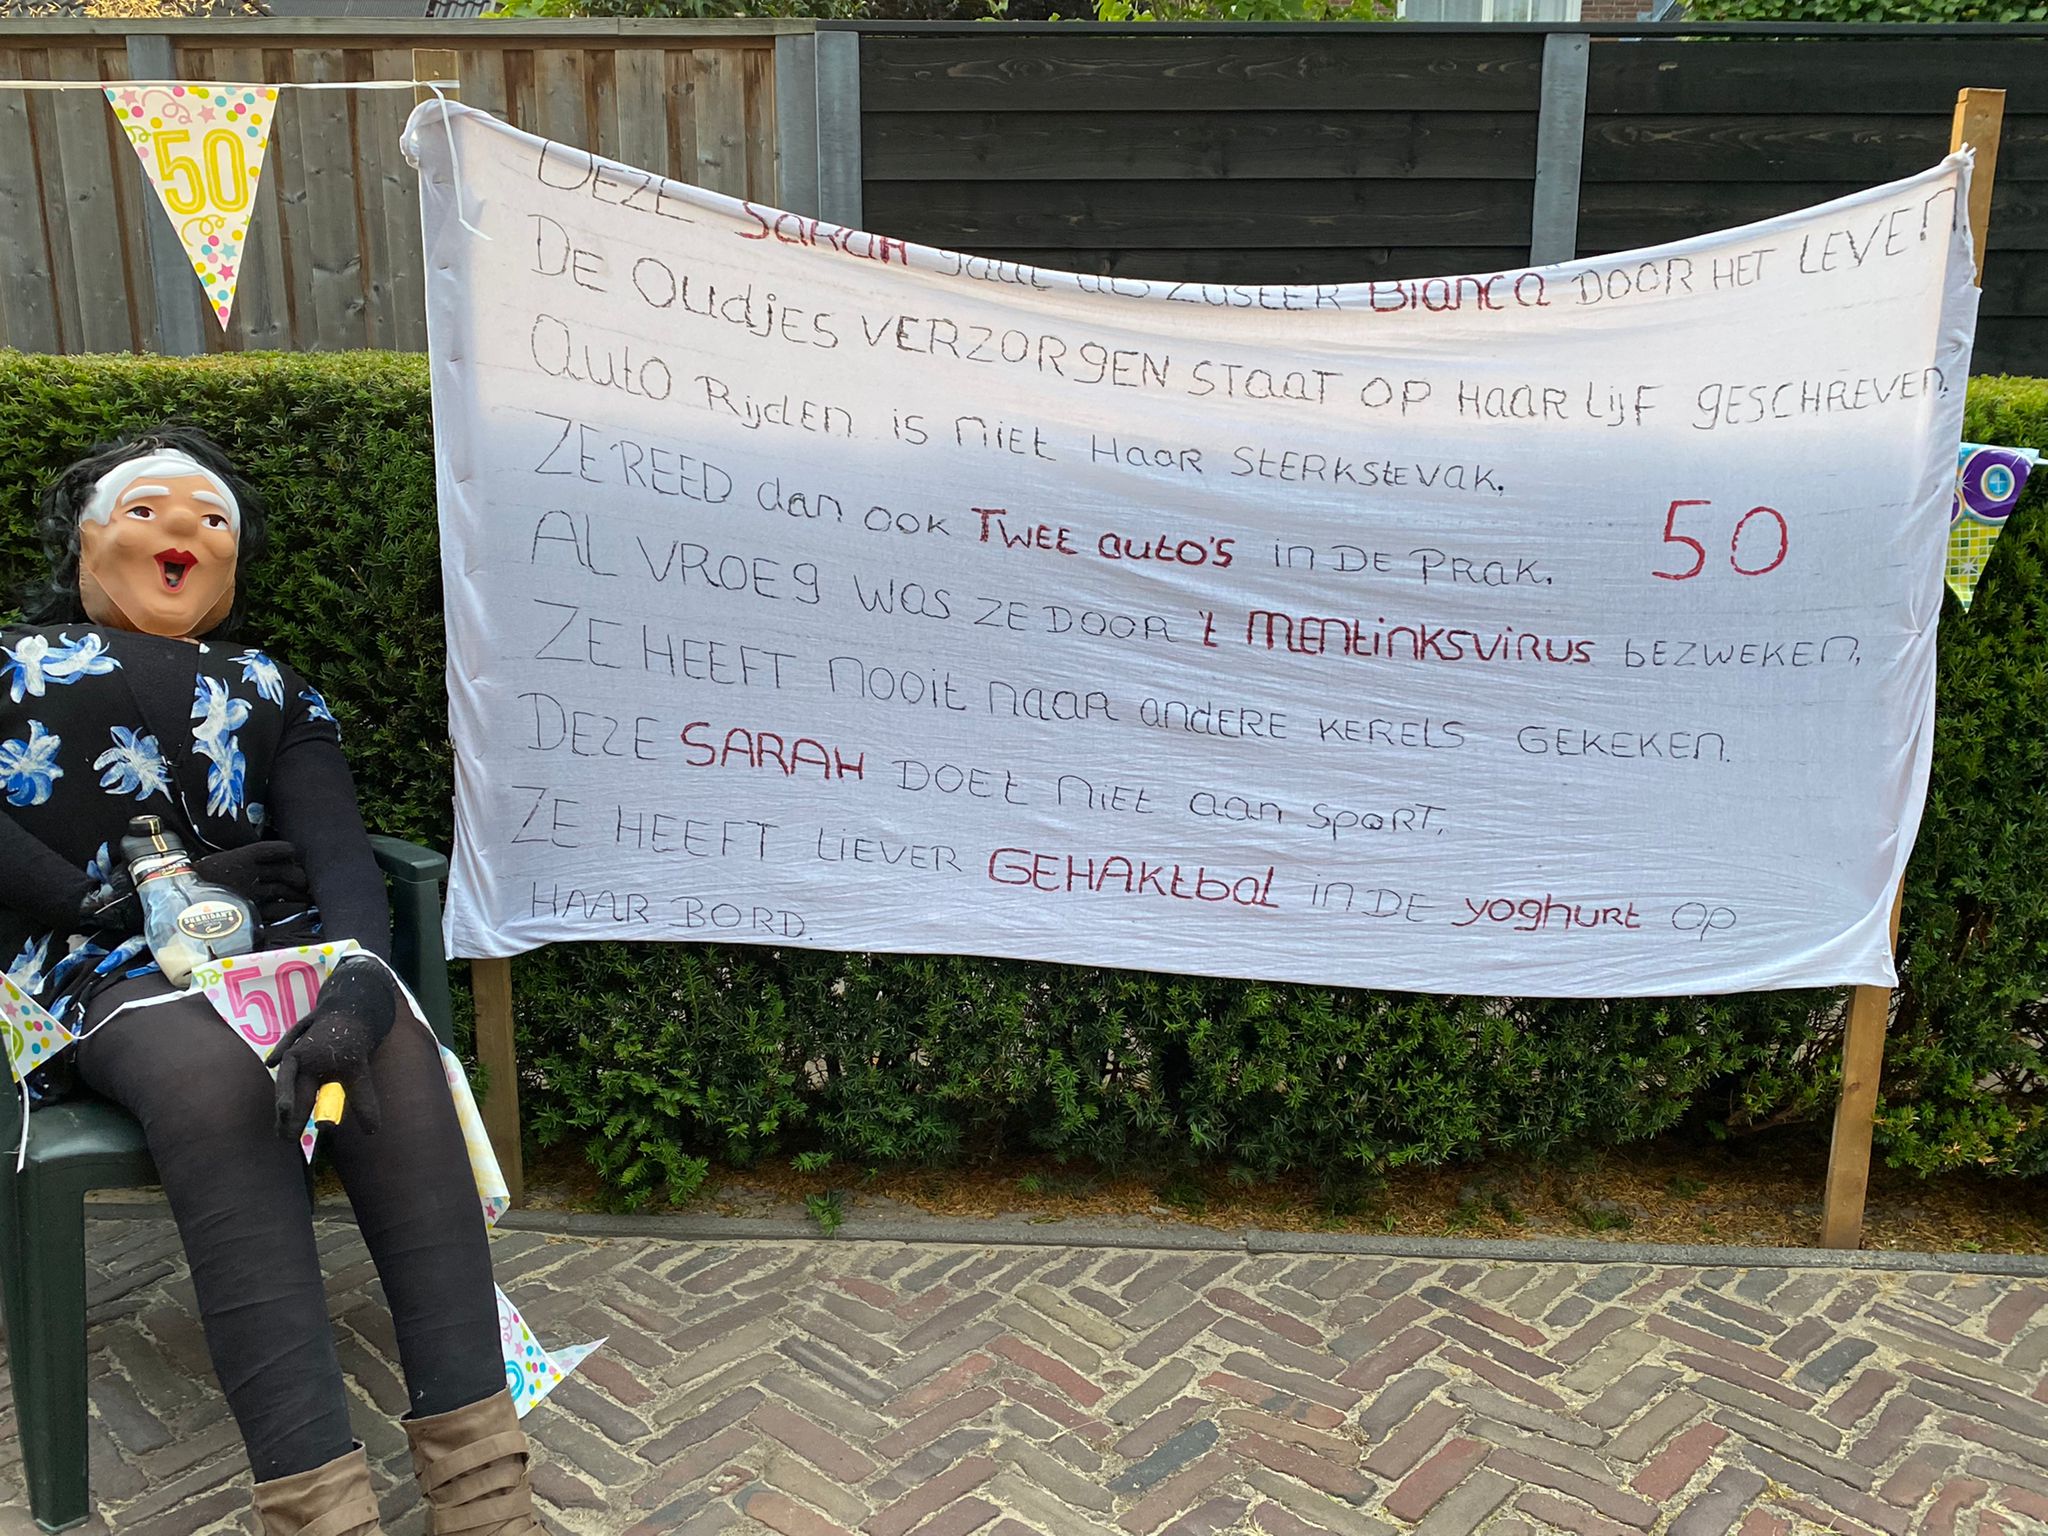 50
DEZE SARAH gaat als ZUSTER Bianca DOOR HET LEVEN.
DE OUdjES VERZORgEN STaaT OP HaaR LijF gESCHREVEN.
auto Rijden is niet Haar STERKSteVak.
ZE REED dan ook TWEE auto's in DE PRak.
50
AL VROEg Was ZE DOOR 't MEntinksvirus bEZWEKEN.
ZE HEEFT nooit naar andERE KERELS GEKEKEN.
DEZE SARAH DOEt niet aan SpoRT.
ZE HEEFT LiEVER GEHAKtbal in DE yoghurt op
HAAR BORD.
SHERIDAN'S
50